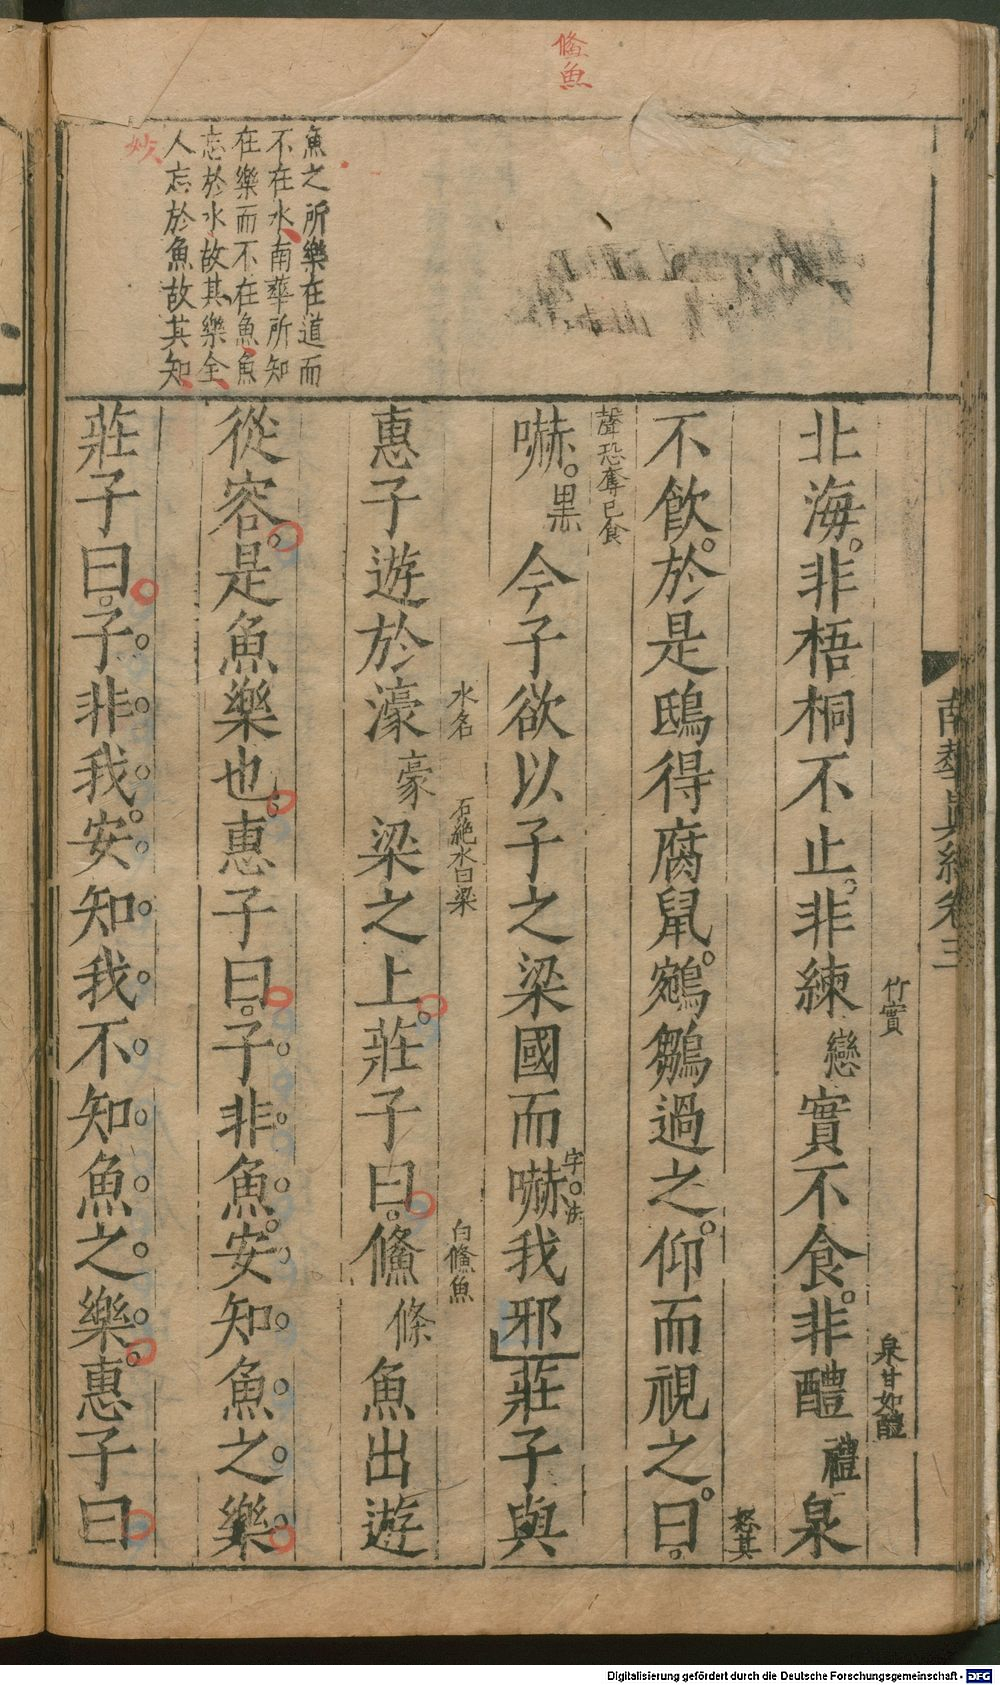 鯈魚
魚之所樂在道而
不在水南華所知
在樂而不在魚魚
忘於水故其樂全
人忘於魚故其知
妙
南華真經卷三
竹實
泉甘如醴
北海。非梧桐不止。非練戀實不食。非醴禮泉
怒其
不飲。於是鴟得腐鼠。鵷鶵過之。仰而視之。曰。
聲恐奪已食
嚇。黒今子欲以子之梁國而嚇我邪莊子與
字法
水名
石絶水曰梁
白鯈魚
惠子遊於濠豪梁之上。莊子曰。鯈條魚出遊
從容。是魚樂也。惠子曰。子非魚。安知魚之樂
莊子曰。子非我。安知我不知魚之樂。惠子曰
Digitalisierung gefördert durch die Deutsche Forschungsgemeinschaft - DFG